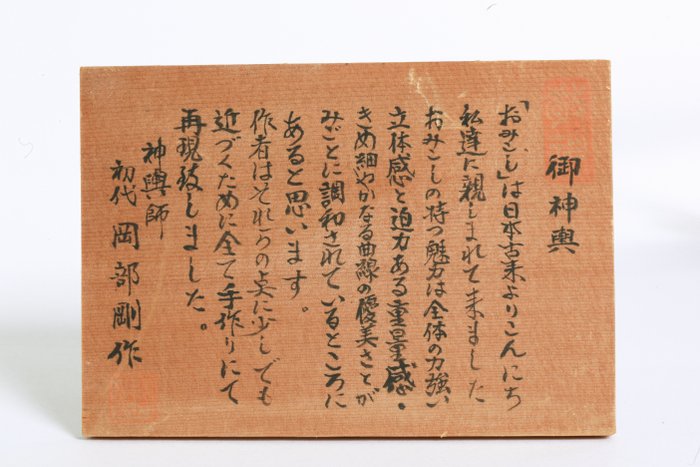 御神輿
「おみこし」は日本古来よりこんにち
私達に親しまれて来ました
おみこしの持つ魅力は全体の力強い
立体感と迫力ある重量感・
きめ細やかなる曲線の優美さとが
みごとに調和されているところに
あると思います。
作者はそれらの点に少しでも
近づくために全て手作りにて
再現致しました。
神輿師
初代 岡部剛作